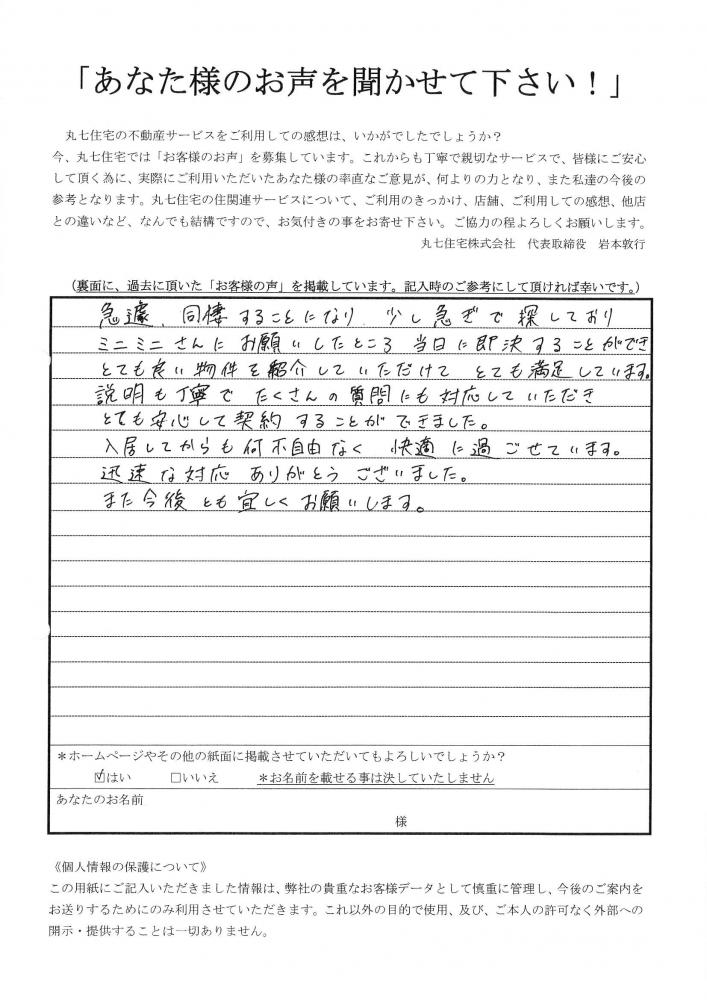 「あなた様のお声を聞かせて下さい！」
丸七住宅の不動産サービスをご利用しての感想は、いかがでしたでしょうか？
今、丸七住宅では「お客様のお声」を募集しています。これからも丁寧で親切なサービスで、皆様にご安心
して頂く為に、実際にご利用いただいたあなた様の率直なご意見が、何よりの力となり、また私達の今後の
参考となります。丸七住宅の住関連サービスについて、ご利用のきっかけ、店舗、ご利用しての感想、他店
との違いなど、なんでも結構ですので、お気付きの事をお寄せ下さい。ご協力の程よろしくお願いします。
丸七住宅株式会社　代表取締役　岩本敦行
（裏面に、過去に頂いた「お客様の声」を掲載しています。記入時のご参考にして頂ければ幸いです。）
急遽、同棲することになり 少し急ぎで探しており
ミニミニさんにお願いしたところ 当日に即決することができ
とても良い物件を紹介していただけて とても満足しています。
説明も丁寧で たくさんの質問にも対応していただき
とても安心して契約することができました。
入居してからも何不自由なく 快適に過ごせています。
迅速な対応 ありがとうございました。
また今後とも宜しくお願いします。
＊ホームページやその他の紙面に掲載させていただいてもよろしいでしょうか？
☑はい　□いいえ　＊お名前を載せる事は決していたしません
あなたのお名前
様
《個人情報の保護について》
この用紙にご記入いただきました情報は、弊社の貴重なお客様データとして慎重に管理し、今後のご案内を
お送りするためにのみ利用させていただきます。これ以外の目的で使用、及び、ご本人の許可なく外部への
開示・提供することは一切ありません。